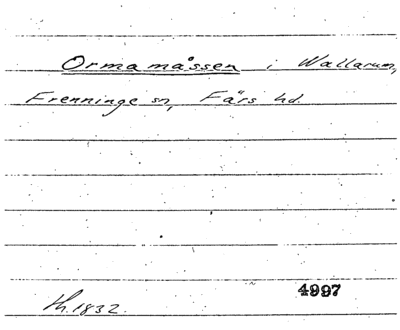 Ormamåssen i Wallarum,
Frenninge sn, Färs hd.
4997
th. 1832.